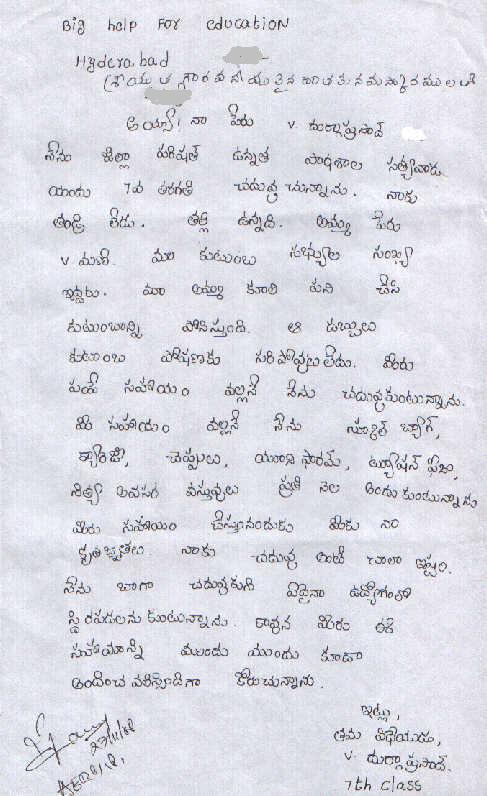 Big help For education
Hyderabad
అయ్యా! నా పేరు v. దుర్గాప్రసాద్
నేను జిల్లా పరిషత్ ఉన్నత పాఠశాల సత్యవాడ
యందు 7వ తరగతి చదువు చున్నాను. నాకు
తండ్రి లేడు. తల్లి ఉన్నది. అమ్మ పేరు
v మణి. మా కుటుంబ సభ్యుల సంఖ్యా
ఇద్దరు. మా అమ్మ కూలి పని చేసి
కుటుంబాన్ని పోసిస్తుంది. ఆ డబ్బులు
కుటుంబ పోషణకు సరిపోవులలేదు. మీరు
సహాయం వల్లనే నేను చదువుకుంటున్నాను.
మీ సహాయం వల్లనే నేను స్కూల్ బ్యాగ్,
క్యారేజీ, చెప్పులు, యూనిఫారమ్, ట్యూషన్ ఫీజు,
నిత్యా అవసర వస్తువులు ప్రతి నెల అందుకుంటున్నాను
మీరు సహాయం చేస్తూనందుకు మీకు నా
కృతజ్ఞతలు నాకు చదువు అంటే చాలా ఇష్టం.
నేను బాగా చదువుకుని ఏదైనా ఉద్యోగంలో
స్థిరపడలనుకుంటున్నాను. కావున మీరు ఈ
సహాయాన్ని ముందు ముందు కూడా
అందించ వలిస్సిందిగా కోరుచున్నాను.
ఇట్లు,
తమ విధేయుడు,
v. దుర్గాప్రసాద్.
7th class